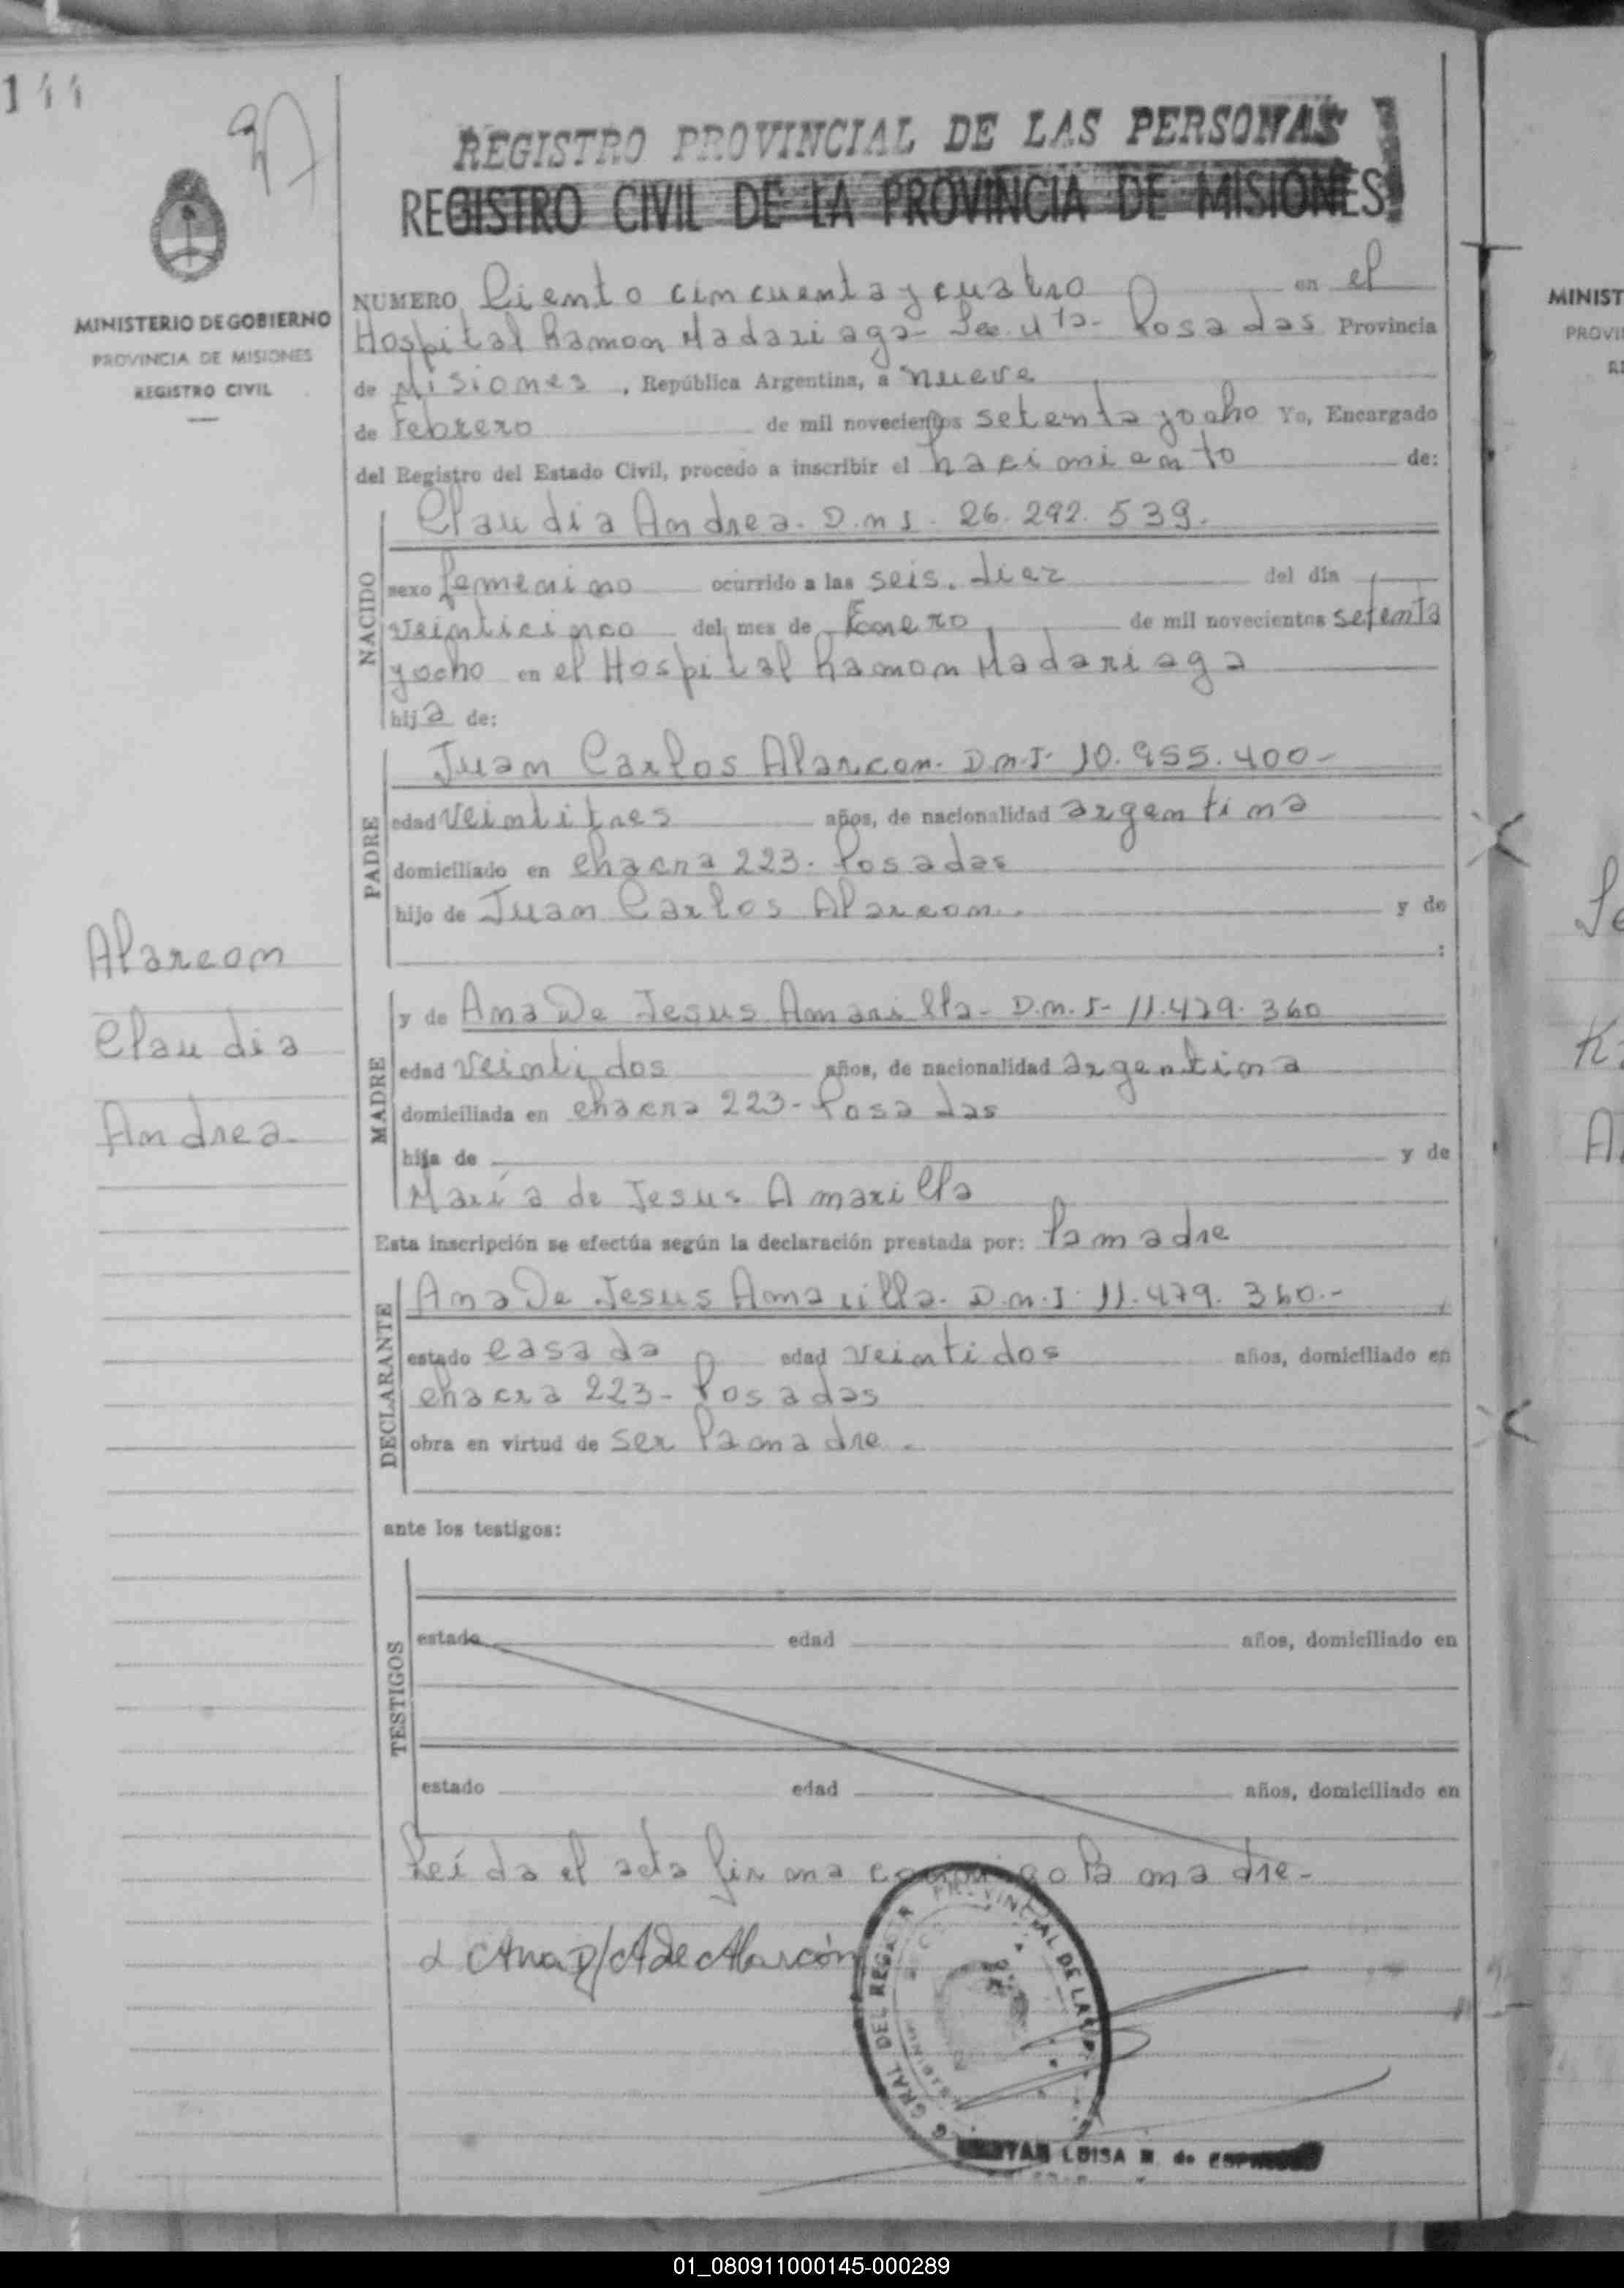 144
REGISTRO PROVINCIAL DE LAS PERSONAS
REGISTRO CIVIL DE LA PROVINCIA DE MISIONES
MINISTERIO DE GOBIERNO
PROVINCIA DE MISIONES
REGISTRO CIVIL
NUMERO Ciento cincuenta y cuatro en el
Hospital Ramon Madariaga- Sec. 4ta- Posadas Provincia
de Misiones, República Argentina, a nueve
de Febrero de mil novecientos setenta y ocho Yo, Encargado
del Registro del Estado Civil, procedo a inscribir el nacimiento de:
NACIDO
Claudia Andrea. D.n I. 26.292.539.
sexo femenino ocurrido a las seis. diez del día
veinticinco del mes de Enero de mil novecientos setenta
y ocho en el Hospital Ramon Madariaga
hija de:
PADRE
Juan Carlos Alarcon. D.n.I- 10.955.400-
edad veintitres años, de nacionalidad argentina
domiciliado en chacra 223. Posadas
hijo de Juan Carlos Alarcon. y de
:
Alarcon
Claudia
Andrea.
MADRE
y de Ana De Jesus Amarilla- D.n.I- 11.479.360
edad veintidos años, de nacionalidad argentina
domiciliada en chacra 223- Posadas
hija de y de
María de Jesus Amarilla
Esta inscripción se efectúa según la declaración prestada por: la madre
DECLARANTE
Ana De Jesus Amarilla. D.n.I. 11.479.360.-
estado casada edad veintidos años, domiciliado en
chacra 223- Posadas
obra en virtud de ser la madre.
ante los testigos:
TESTIGOS
estado edad años, domiciliado en
estado edad años, domiciliado en
Leída el acta firma conmigo la madre-
Ana D/ A de Alarcón
GRAL DEL REGISTRO PROVINCIAL DE LAS
LUISA de
MINIST
PROVI
01_080911000145-000289